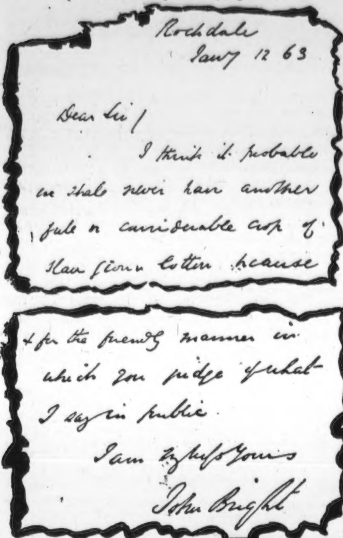 Rochdale
Jany 12 63
Dear Sir/
I think it probable
we shall never have another
full or considerable crop of
slave grown cotton because
& for the friendly manner in
which you judge of what
I say in public.
I am Yours
John Bright